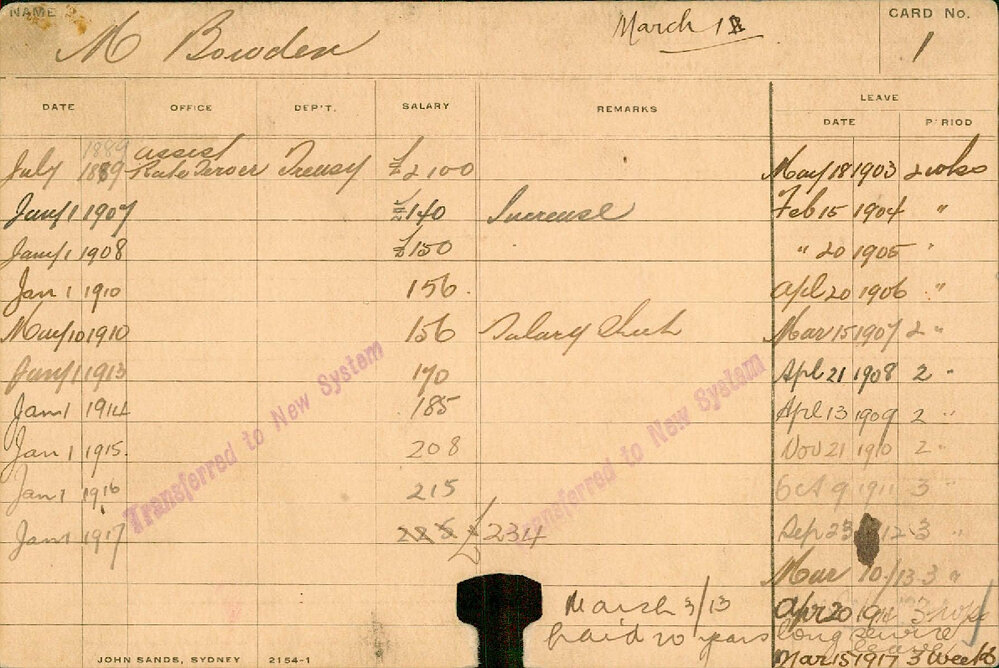 NAME M Bowden March 1 CARD No. 1
DATE OFFICE DEP'T. SALARY REMARKS LEAVE
DATE PERIOD
1889 assist
July 1889 Treasy £2 100 May 18 1903 2 wks
Jany 1 1907 £140 Increase Feb 15 1904 "
Jany 1 1908 £150 " 20 1905 "
Jan 1 1910 156. Apl 20 1906 "
May 10 1910 156 Salary Mar 15 1907 2 "
Jany 1 1913 170 Apl 21 1908 2 "
Jan 1 1914 185 Apl 13 1909 2 "
Jan 1 1915. 208 Nov 21 1910 2 "
Jan 1 1916 215 Oct 9 1911 3 "
Jan 1 1917 £234 Sep 23 12 3 "
Transferred to New System
Transferred to New System
Mar 10/13 3 "
March 3/13 Apr 20 3 wks
paid 20 years long service leave
Mar 15 1917 3 weeks
JOHN SANDS, SYDNEY 2154-1